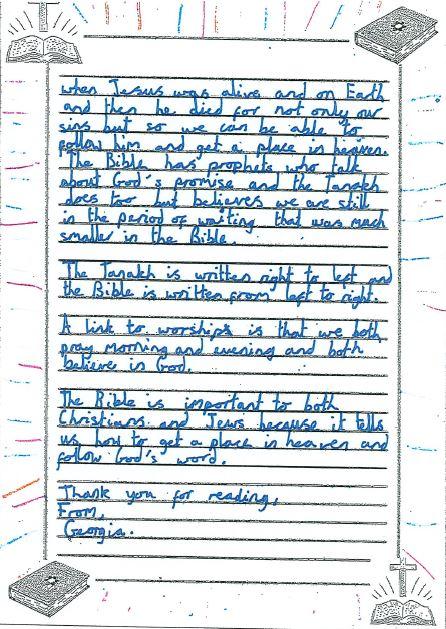 when Jesus was alive and on Earth
and then he died for not only our
sins but so we can be able to
follow him and get a place in heaven.
The Bible has prophets who talk
about God's promise and the Tanakh
does too but believes we are still
in the period of waiting that was much
smaller in the Bible.
The Tanakh is written right to left and
the Bible is written from left to right.
A link to worships is that we both
pray morning and evening and both
believe in God.
The Bible is important to both
Christians and Jews because it tells
us how to get a place in heaven and
follow God's word.
Thank you for reading,
From,
Georgia.